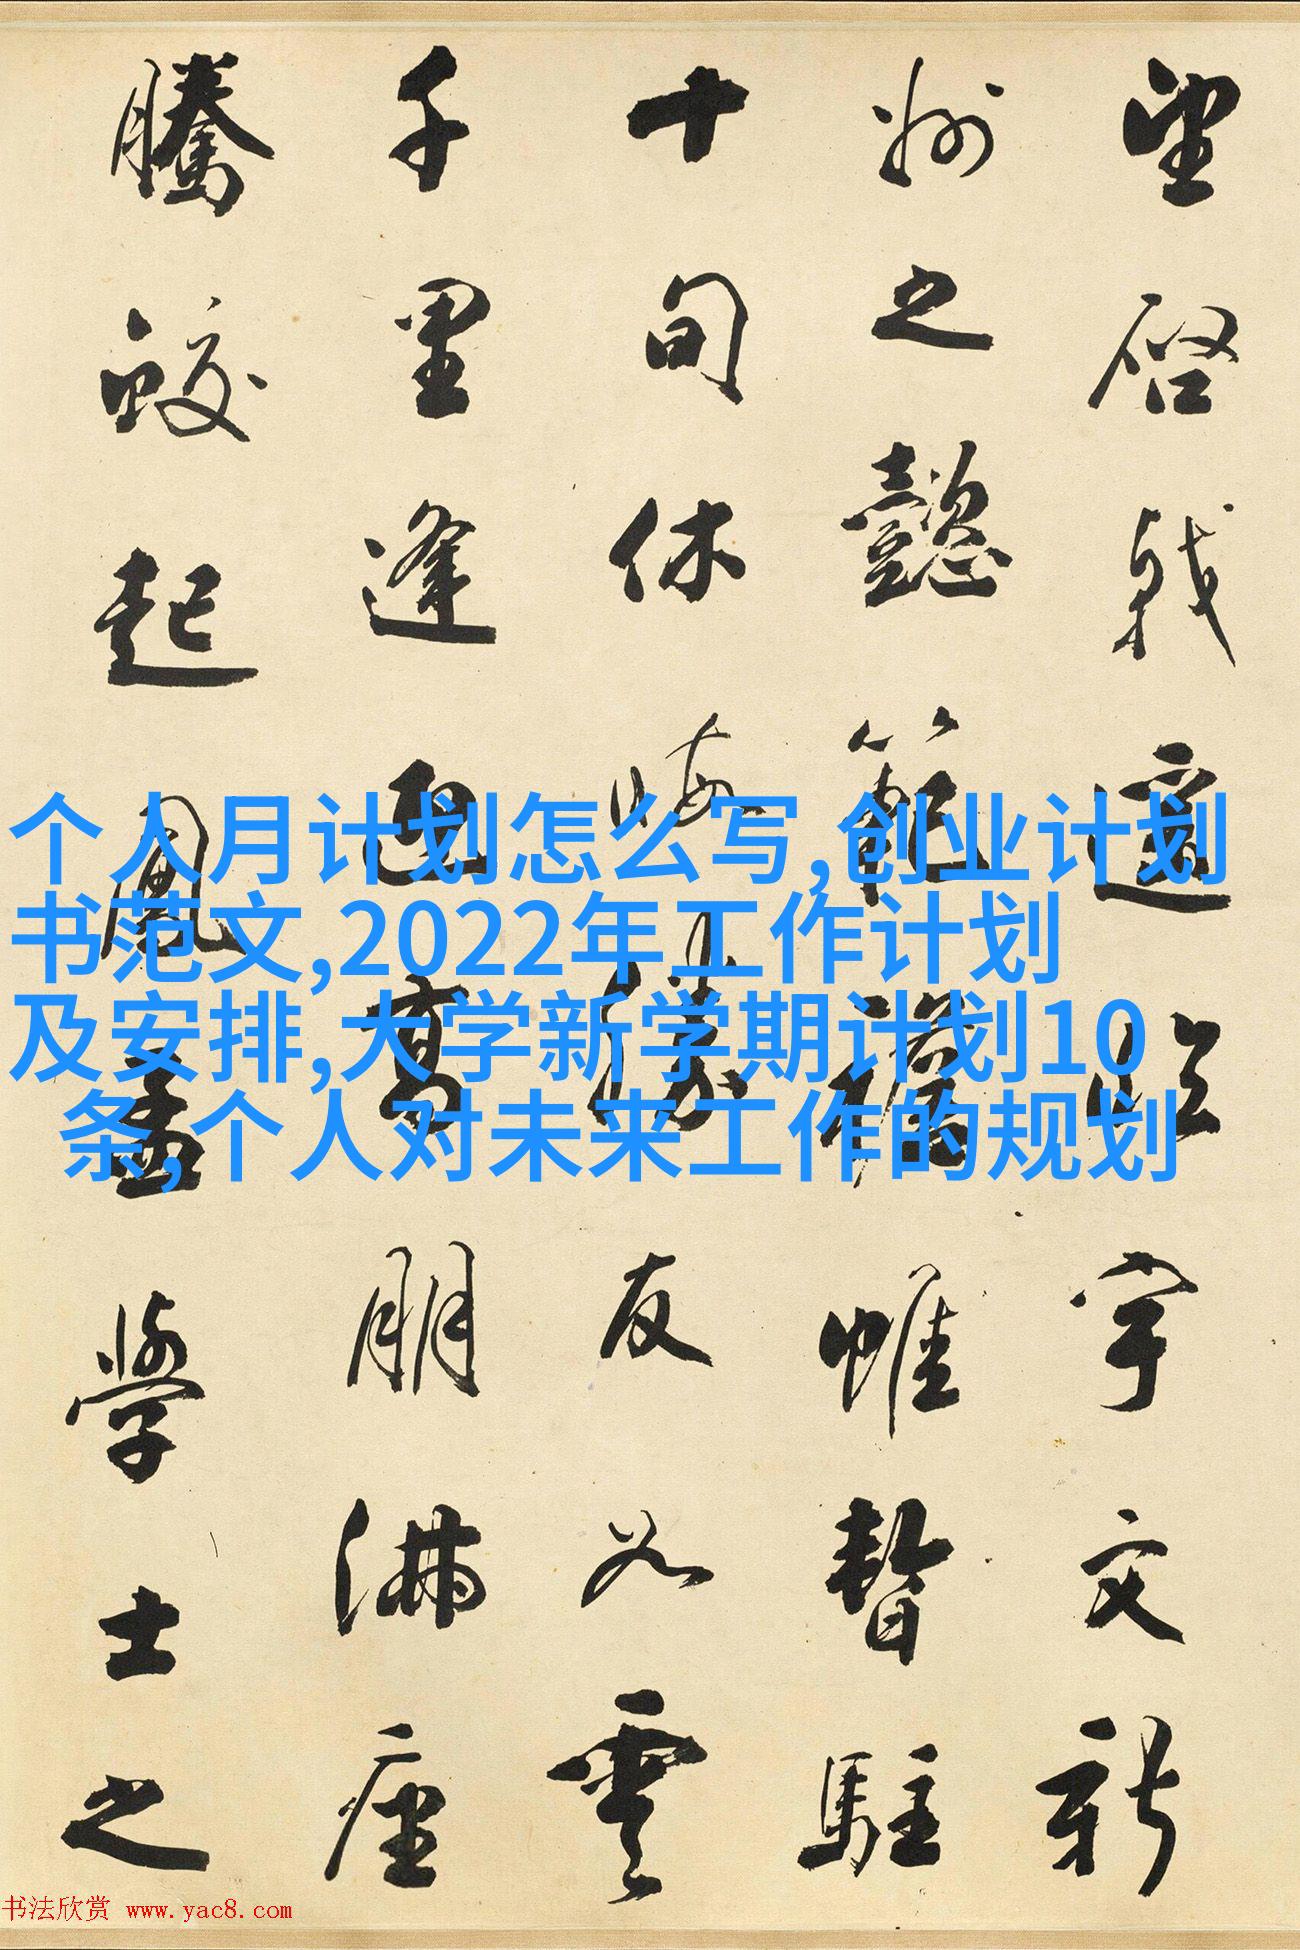 望啓戟遥臨宇文新
州之懿範襜帷暫駐
十旬休暇勝友如雲
千里逢迎高朋滿座
騰蛟起鳳孟學士之
个人月计划怎么写,创业计划
书范文,2022年工作计划
及安排,大学新学期计划10
条,个人对未来工作的规划
书法欣赏 www.yac8.com